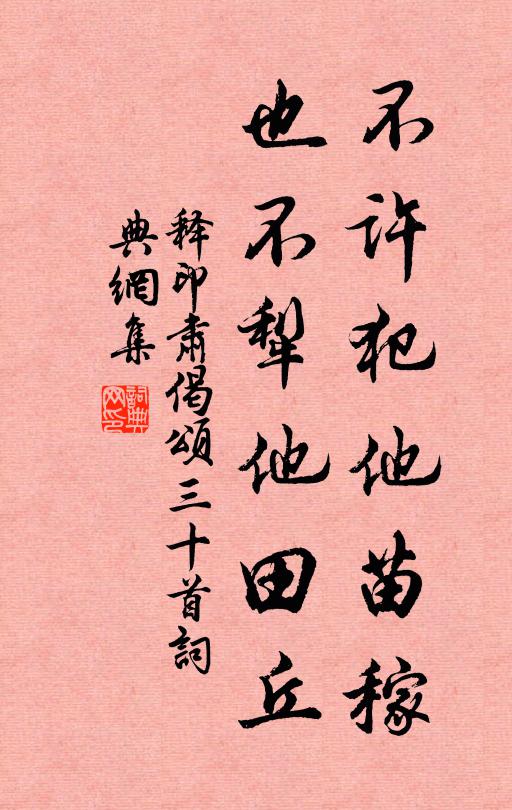 不许犯他苗稼
也不犁他田丘
释印肃偈颂三十首詞
典網集
詞典
网印